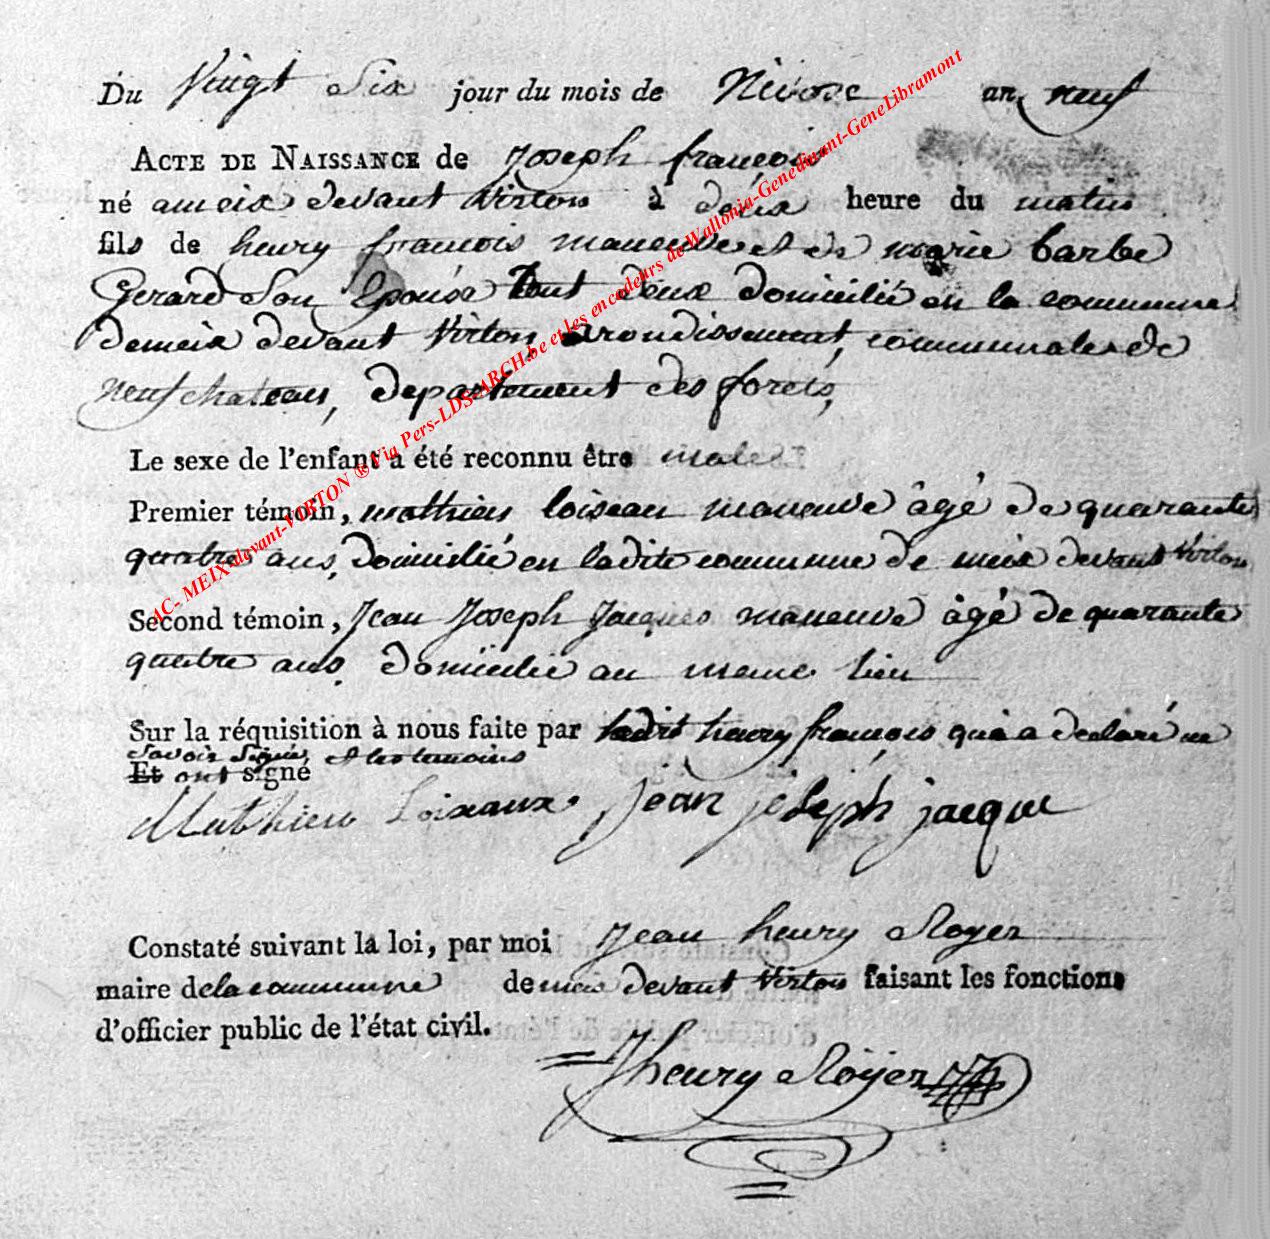 Du Vingt Six jour du mois de Nivose an neuf
ACTE DE NAISSANCE de Joseph françois
né a meix devant Virton à deux heure du matin
fils de henry francois maneuvre et de marie barbe
Gerard Son Epouse tout deux domicilié en la commune
de meix devant Virton, arondissement, communale de
neufchateau, departement des forets,
Le sexe de l'enfant a été reconnu être male
Premier témoin, mathieu loiseau maneuve âgé de quarante
quatre ans, domicilié en ladite commune de meix devant Virton
Second témoin, Jean Joseph Jacques maneuve âgé de quarante
quatre ans. domicilie au meme lieu
Sur la réquisition à nous faite par ledit henry françois qui a declaré ne
savoir signé, et les temoins
Et ont signé
Mathieu Loixaux. jean joseph jacque
Constaté suivant la loi, par moi Jean henry Royer
maire de la commune de meix devant Virton faisant les fonctions
d'officier public de l'état civil.
Jhenry Röÿer
AC- MEIX-devant-VIRTON ® Via Pers-LDS-ARCH.be et les encodeurs de Wallonia-Genedinant-GeneLibramont